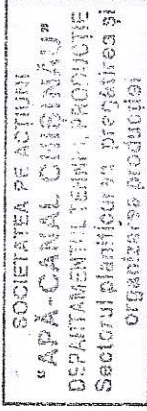 SOCIETATEA PE ACȚIUNI
"APĂ-CANAL CHIȘINĂU"
DEPARTAMENTUL TEHNIC, PRODUCȚIE
Sectorul planificarea, pregătirea și
organizarea producției